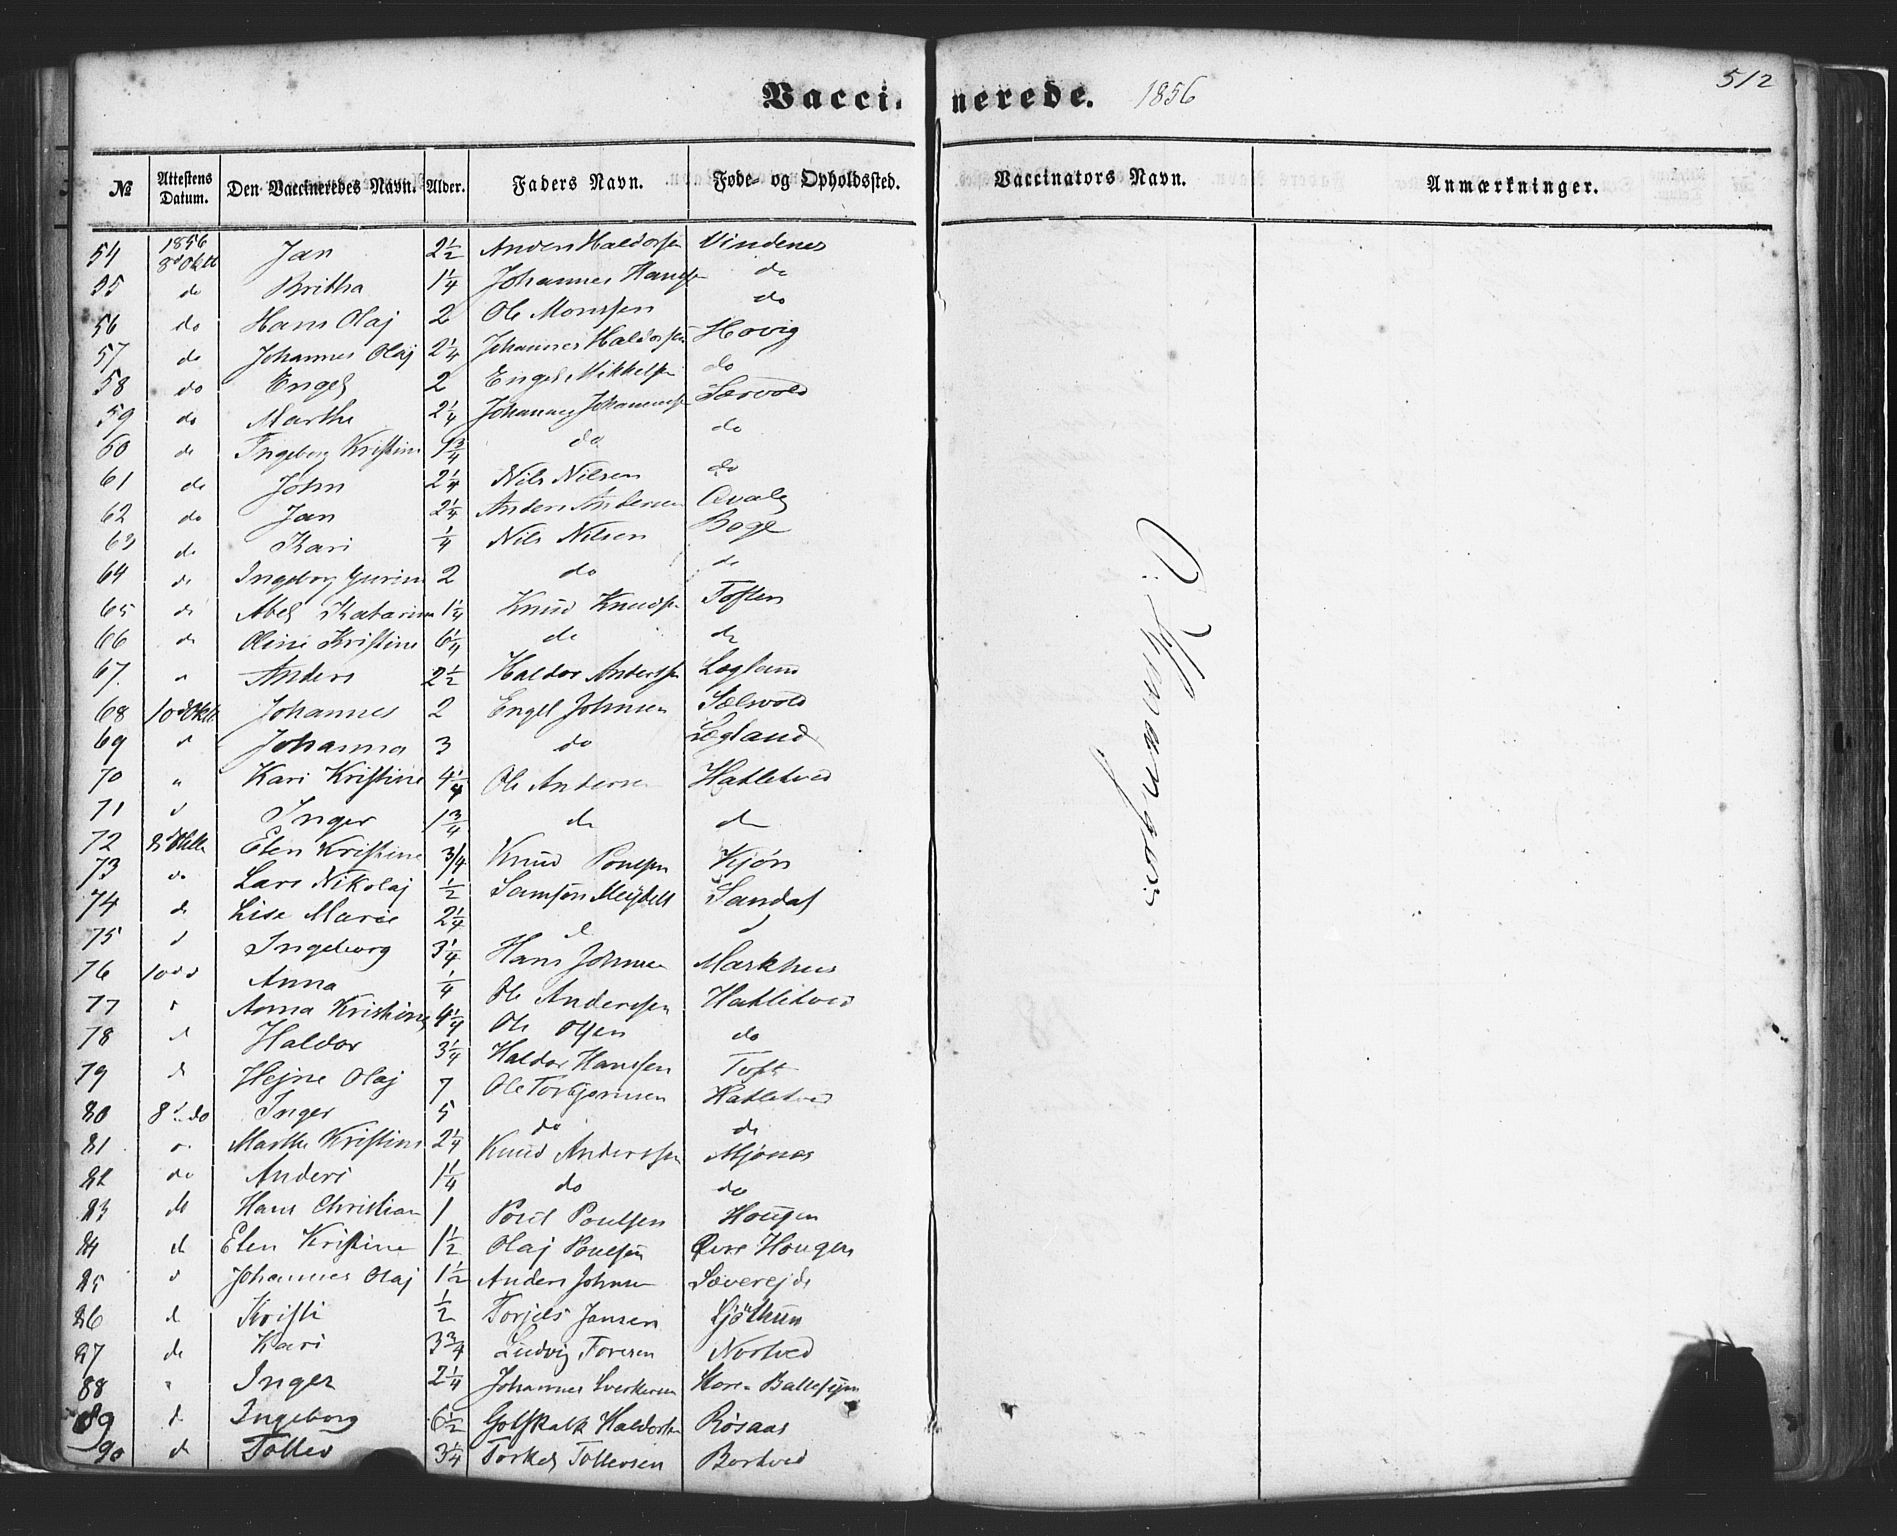 512
Vaccinerede. 1856
№ Attestens Datum. Den Vaccineredes Navn. Alder. Faders Navn. Føde- og Opholdssted. Vaccinators Navn. Anmærkninger.
54 1856 8d Oktb Jan 2½ Anders Haldorsen Vindenes
55 do Britha 1¼ Johannes Hansen do
56 do Hans Olaj 2 Ole Monssen do
57 do Johannes Olaj 2¼ Johannes Haldorsen Hovig
58 do Engel 2 Engel Mikkelsen do
59 do Marthe 2¼ Johannes Johannessen Særvold
60 do Ingeborg Kristine 1¾ do do
61 do John 2¼ Nils Nilsen do
62 do Jan 2¼ Anders Andersen Qvale
63 do Kari ¼ Nils Nilsen Boge
64 do Ingeborg Gurine 2 do do
65 do Abel Katarina 1¼ Knud Knudsen Toften
66 do Oline Kristine 6¼ do do
67. " Anders 2½ Haldor Anderssen Legland
68 10d Oktb Johannes 2 Engel Johnsen Sælvold
69 d Johanna 3 do Legland
70 " Kari Kristine 4¼ Ole Andersen Hatletved
71 d Inger 1¾ do do
72 8d Oktb Elen Kristine 3/4 Knud Poulsen Kjøn
73 do Lars Nikolaj ½ Samson Meydell Sandal
74 d Lise Marie 2¼ d d
75 d Ingeborg 3¼ Hans Johnsen Markhus
76 10 d d Anna ¼ Ole Anderssen Hatletved
77 " Anna Kristine 4¼ Ole Olsen do
78 d Haldor 3¼ Haldor Hanssen Toft
79 d Hejne Olaj 7 Ole Torbjørnsen Hatletved
80 8d do Inger 5 do do
81 " Marthe Kristine 2¼ Knud Anderssen Mjønes
82 do Anders 1¼ do do
83 do Hans Christian 1 Poul Poulsen Hougen
84 d Elen Kristine 1½ Olaj Poulsen Øvre Hougen
85 d Johannes Olaj 1½ Anders Johnsen Sæverejde
86 d Kristi ½ Torjels Jansen Ljøthun
87 do Kari 3¾ Ludvig Toresen Nortved
88 " Inger 2¼ Johannes Sverkersen Hore- Ballesejm
89 d Ingeborg 6½ Gotskalk Haldorsen Røsaas
90 d Tollev 3¼ Torkel Tollevsen Bortved